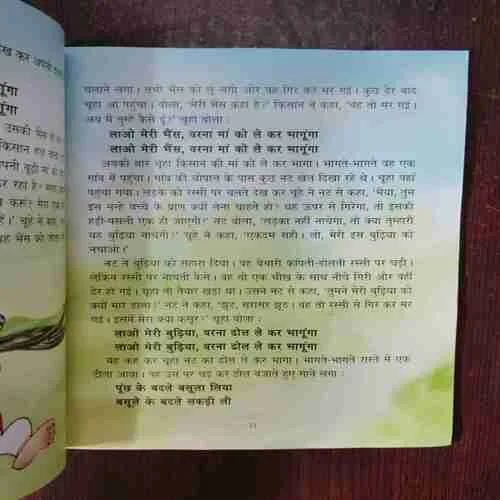 ख कर अपनी
गूंगा
गूंगा
उसकी भैंस
किसान हल
पनी बूढ़ी मां
कर रहा है।
है।' चूहे ने कहा,
यह भैंस को जोत
चलाने लगा। तभी भैंस को लू लगी और वह गिर कर मर गई। कुछ देर बाद
चूहा आ पहुंचा। बोला, 'मेरी भैंस कहां है?' किसान ने कहा, 'वह तो मर गई।
अब मैं तुम्हें कैसे दूं?' चूहा बोला :
लाओ मेरी भैंस, वरना मां को ले कर भागूंगा
लाओ मेरी भैंस, वरना मां को ले कर भागूंगा
अबकी बार चूहा किसान की मां को ले कर भागा। भागते-भागते वह एक
गांव में पहुंचा। गांव की चौपाल के पास कुछ नट खेल दिखा रहे थे। चूहा वहां
पहुंच गया। लड़के को रस्सी पर चलते देख कर चूहे ने नट से कहा, 'भैया, तुम
इस नन्हे बच्चे के प्राण क्यों लेना चाहते हो। यह ऊपर से गिरेगा, तो इसकी
हड्डी-पसली एक हो जाएगी।' नट बोला, 'लड़का नहीं नाचेगा, तो क्या तुम्हारी
यह बुढ़िया नाचेगी?' चूहे ने कहा, 'एकदम सही। लो, मेरी इस बुढ़िया को
नचाओ।'
नट ने बुढ़िया को सहारा दिया। वह बेचारी कांपती-डोलती रस्सी पर चढ़ी।
लेकिन रस्सी पर नाचती कैसे। वह तो एक चीख के साथ नीचे गिरी और वहीं
ढेर हो गई। चूहा तो तैयार खड़ा था। उसने नट से कहा, 'तुमने मेरी बुढ़िया को
क्यों मार डाला।' नट ने कहा, 'झूठ, सरासर झूठ। वह तो रस्सी से गिर कर मर
गई। इसमें मेरा क्या कसूर?' चूहा बोला :
लाओ मेरी बुढ़िया, वरना ढोल ले कर भागूंगा
लाओ मेरी बुढ़िया, वरना ढोल ले कर भागूंगा
यह कह कर चूहा नट का ढोल ले कर भागा। भागते-भागते रास्ते में एक
टीला आया। वह उस पर चढ़ कर ढोल बजाते हुए गाने लगा :
पूंछ के बदले बसूला लिया
बसूले के बदले लकड़ी ली